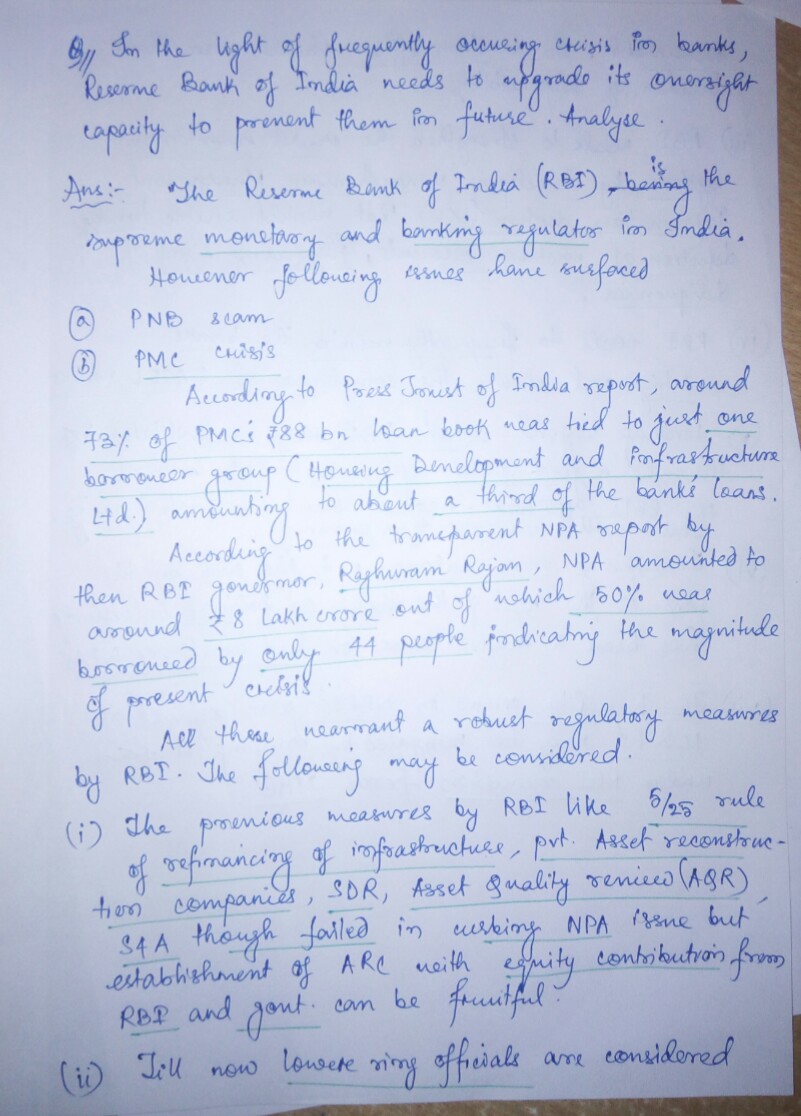 Q// In the light of frequently occuring crisis in banks,
Reserve Bank of India needs to upgrade its oversight
capacity to prevent them in future. Analyse.
Ans:- The Reserve Bank of India (RBI) is the
supreme monetary and banking regulator in India.
However following issues have surfaced
(a) PNB scam
(b) PMC crisis
According to Press Trust of India report, around
73% of PMC's ₹88 bn loan book was tied to just one
borrower group (Housing Development and Infrastructure
Ltd.) amounting to about a third of the bank's loans.
According to the transparent NPA report by
then RBI governor, Raghuram Rajan, NPA amounted to
around ₹8 Lakh crore out of which 50% was
borrowed by only 44 people indicating the magnitude
of present crisis.
All these warrant a robust regulatory measures
by RBI. The following may be considered.
(i) The previous measures by RBI like 5/25 rule
of refinancing of infrastructure, pvt. Asset reconstruc-
tion companies, SDR, Asset Quality review (AQR),
S4A though failed in curbing NPA issue but
establishment of ARC with equity contribution from
RBI and govt. can be fruitful.
(ii) Till now lower ring officials are considered